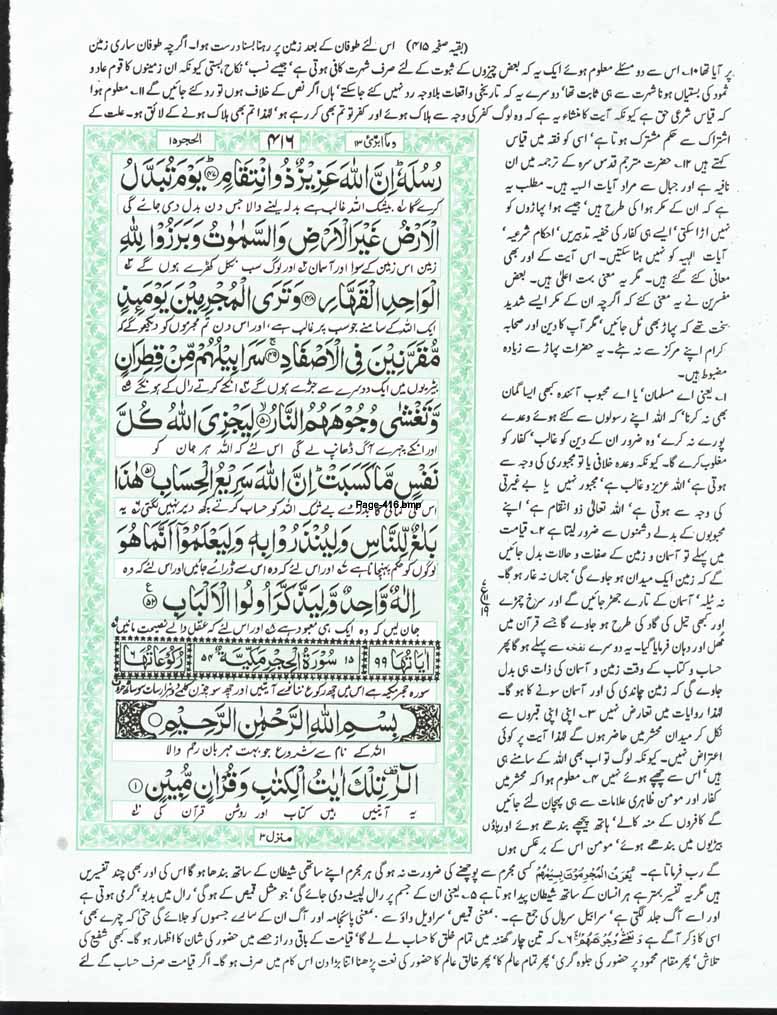 (بقیہ صفحہ ۴۱۵) اس لئے طوفان کے بعد زمین پر رہنا بسنا درست ہوا۔ اگرچہ طوفان ساری زمین
پر آیا تھا ۱۰۔ اس سے دو مسئلے معلوم ہوئے ایک یہ کہ بعض چیزوں کے ثبوت کے لئے صرف شہرت کافی ہوتی ہے، جیسے نسب، نکاح، ہستی کیونکہ ان زمینوں کا قوم عاد و
ثمود کی بستیاں ہونا شہرت سے ہی ثابت تھا، دوسرے یہ کہ تاریخی واقعات بلاوجہ رد نہیں کئے جا سکتے، ہاں اگر نص کے خلاف ہوں تو رد کئے جائیں گے ۱۱۔ معلوم ہوا
کہ قیاس شرعی حق ہے کیونکہ آیت کا منشاء یہ ہے کہ وہ لوگ کفر کی وجہ سے ہلاک ہوئے اور کفر تو تم بھی کر رہے ہو، لہٰذا تم بھی ہلاک ہونے کے لائق ہو۔ علت کے
اشتراک سے حکم مشترک ہوتا ہے، اسی کو فقہ میں قیاس
کہتے ہیں ۱۲۔ حضرت مترجم قدس سرہ کے ترجمہ میں ان
نافیہ ہے اور جبال سے مراد آیات الٰہیہ ہیں۔ مطلب یہ
ہے کہ ان کے مکر ہوا کی طرح ہیں، جیسے ہوا پہاڑوں کو
نہیں اڑا سکتی، ایسے ہی کفار کی خفیہ تدبیریں، احکام شرعیہ،
آیات الٰہیہ کو نہیں ہٹا سکتیں۔ اس آیت کے اور بھی
معانی کئے گئے ہیں۔ مگر یہ معنی بہت اعلیٰ ہیں۔ بعض
مفسرین نے یہ معنی کئے کہ اگرچہ ان کے مکر ایسے شدید
سخت تھے کہ پہاڑ بھی ٹل جائیں، مگر آپ کا دین اور صحابہ
کرام اپنے مرکز سے نہ ہٹے۔ یہ حضرات پہاڑ سے زیادہ
مضبوط ہیں۔
۱۔ یعنی اے مسلمان، یا اے محبوب آئندہ کبھی ایسا گمان
بھی نہ کرنا، کہ اللہ اپنے رسولوں سے کئے ہوئے وعدے
پورے نہ کرے، وہ ضرور ان کے دین کو غالب، کفار کو
مغلوب کرے گا۔ کیونکہ وعدہ خلافی یا تو مجبوری کی وجہ سے
ہوتی ہے، اللہ عزیز و غالب ہے، مجبور نہیں یا بے غیرتی
کی وجہ سے ہوتی ہے، اللہ تعالیٰ ذو انتقام ہے، اپنے
محبوبوں کے بدلے دشمنوں سے ضرور لیتا ہے ۲۔ قیامت
میں پہلے تو آسمان و زمین کے صفات و حالات بدل جائیں
گے کہ زمین ایک میدان ہو جاوے گی، جہاں نہ غار ہو گا۔
نہ ٹیلہ، آسمان کے تارے جھڑ جائیں گے اور سرخ چمڑے
اور کبھی تیل کی گاد کی طرح ہو جاوے گا جسے قرآن میں
مھل اور دھان فرمایا گیا۔ یہ دوسرے نفخہ سے پہلے ہو گا پھر
حساب و کتاب کے وقت زمین و آسمان کی ذات ہی بدل
جاوے گی کہ زمین چاندی کی اور آسمان سونے کا ہو گا۔
لہٰذا روایات میں تعارض نہیں ۳۔ اپنی اپنی قبروں سے
نکل کر میدان محشر میں حاضر ہوں گے لہٰذا آیت پر کوئی
اعتراض نہیں۔ کیونکہ لوگ تو اب بھی اللہ کے سامنے ہی
ہیں، اس سے چھپے ہوئے نہیں ۴۔ معلوم ہوا کہ محشر میں
کفار اور مومن ظاہری علامات سے ہی پہچان لئے جائیں
گے کافروں کے منہ کالے، ہاتھ پیچھے بندھے ہوئے اور پاؤں
بیڑیوں میں بندھے ہوئے، مومن اس کے برعکس ہوں
وما ابرئ ۱۳
۴۱۶
الحجر ۱۵
رُسُلَهٗ اِنَّ اللّٰهَ عَزِیْزٌ ذُو انْتِقَامٍ ۴۷ یَوْمَ تُبَدَّلُ
کرے گا بیشک اللہ غالب ہے بدلہ لینے والا جس دن بدل دی جائے گی
الْاَرْضُ غَیْرَ الْاَرْضِ وَالسَّمٰوٰتُ وَبَرَزُوْا لِلّٰهِ
زمین اس زمین کے سوا اور آسمان اور لوگ سب نکل کھڑے ہوں گے
الْوَاحِدِ الْقَهَّارِ ۴۸ وَتَرَى الْمُجْرِمِیْنَ یَوْمَىِٕذٍ
ایک اللہ کے سامنے جو سب پر غالب ہے، اور اس دن تم مجرموں کو دیکھو گے کہ
مُّقَرَّنِیْنَ فِی الْاَصْفَادِ ۴۹ سَرَابِیْلُهُمْ مِّنْ قَطِرَانٍ
بیڑیوں میں ایک دوسرے سے جڑے ہوں گے انکے کرتے رال کے ہونگے
وَّتَغْشٰى وُجُوْهَهُمُ النَّارُ ۵۰ لِیَجْزِیَ اللّٰهُ كُلَّ
اور انکے چہرے آگ ڈھانپ لے گی اس لئے کہ اللہ ہر جان کو
نَفْسٍ مَّا كَسَبَتْ اِنَّ اللّٰهَ سَرِیْعُ الْحِسَابِ ۵۱ هٰذَا
اس کی کمائی کا بدلہ دے بے شک اللہ کو حساب کرتے کچھ دیر نہیں لگتی یہ
Page-416.bmp
بَلٰغٌ لِّلنَّاسِ وَلِیُنْذَرُوْا بِهٖ وَلِیَعْلَمُوْۤا اَنَّمَا هُوَ
لوگوں کو حکم پہنچانا ہے اور اس لئے کہ وہ اس سے ڈرائے جائیں اور اس لئے کہ وہ
اِلٰهٌ وَّاحِدٌ وَّلِیَذَّكَّرَ اُولُوا الْاَلْبَابِ ۵۲
جان لیں کہ وہ ایک ہی معبود ہے اور اس لئے کہ عقل والے نصیحت مانیں
اٰیَاتُهَا ۹۹
۱۵ سُوْرَةُ الْحِجْرِ مَكِّیَّةٌ ۵۴
رُكُوْعَاتُهَا ۶
سورہ حجر مکیہ ہے اس میں چھ رکوع ننانوے آیتیں اور چھ سو چون کلمے دو ہزار سات سو ساٹھ حرف
بِسْمِ اللّٰهِ الرَّحْمٰنِ الرَّحِیْمِ
اللہ کے نام سے شروع جو بہت مہربان رحم والا
الٓرٰ تِلْكَ اٰیٰتُ الْكِتٰبِ وَقُرْاٰنٍ مُّبِیْنٍ ۱
یہ آیتیں ہیں کتاب اور روشن قرآن کی
منزل ۳
گے رب فرماتا ہے۔ یُعْرَفُ الْمُجْرِمُوْنَ بِسِیْمٰهُمْ کسی مجرم سے پوچھنے کی ضرورت نہ ہو گی ہر مجرم اپنے ساتھی شیطان کے ساتھ بندھا ہو گا اس کی اور بھی چند تفسیریں
ہیں مگر یہ تفسیر بہتر ہے ہر انسان کے ساتھ شیطان پیدا ہوتا ہے ۵۔ یعنی ان کے جسم پر رال لپیٹ دی جائے گی، جو مثل قمیص کے ہو گی، رال میں بدبو، گرمی ہوتی ہے
اور اسے آگ جلد لگتی ہے، سرابیل سربال کی جمع ہے۔ معنی قمیص، سراویل واؤ سے معنی پائجامہ اور آگ ان کے سارے جسموں کو جلائے گی حتیٰ کہ چہرے بھی،
اسی کا ذکر آگے ہے وَتَغْشٰى وُجُوْهَهُمْ ۶۔ کہ تین چار گھنٹہ میں تمام خلق کا حساب لے لے گا، قیامت کے باقی دراز حصے میں حضور کی شان کا اظہار ہو گا۔ کبھی شفیع کی
تلاش، پھر مقام محمود پر حضور کی جلوہ گری، پھر تمام عالم کا، پھر خالق عالم کا حضور کی نعت پڑھنا اتنا بڑا دن اس کام میں صرف ہو گا۔ اگر قیامت صرف حساب کے لئے